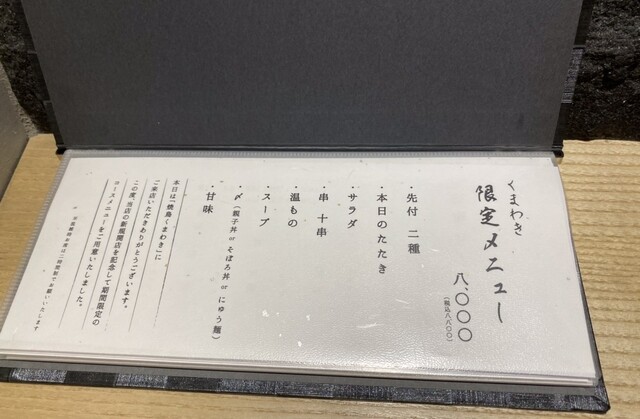 くまわき
限定メニュー
八、〇〇〇
(税込八八〇〇)
・先付 二種
・本日のたたき
・サラダ
・串 十串
・温もの
・スープ
・〆(親子丼orそぼろ丼orにゅう麺)
・甘味
本日は「焼鳥くまわき」に
ご来店いただきありがとうございます。
この度、当店の新規開店を記念して期間限定の
コースメニューをご用意いたしました。
二時間制でお願いいたします